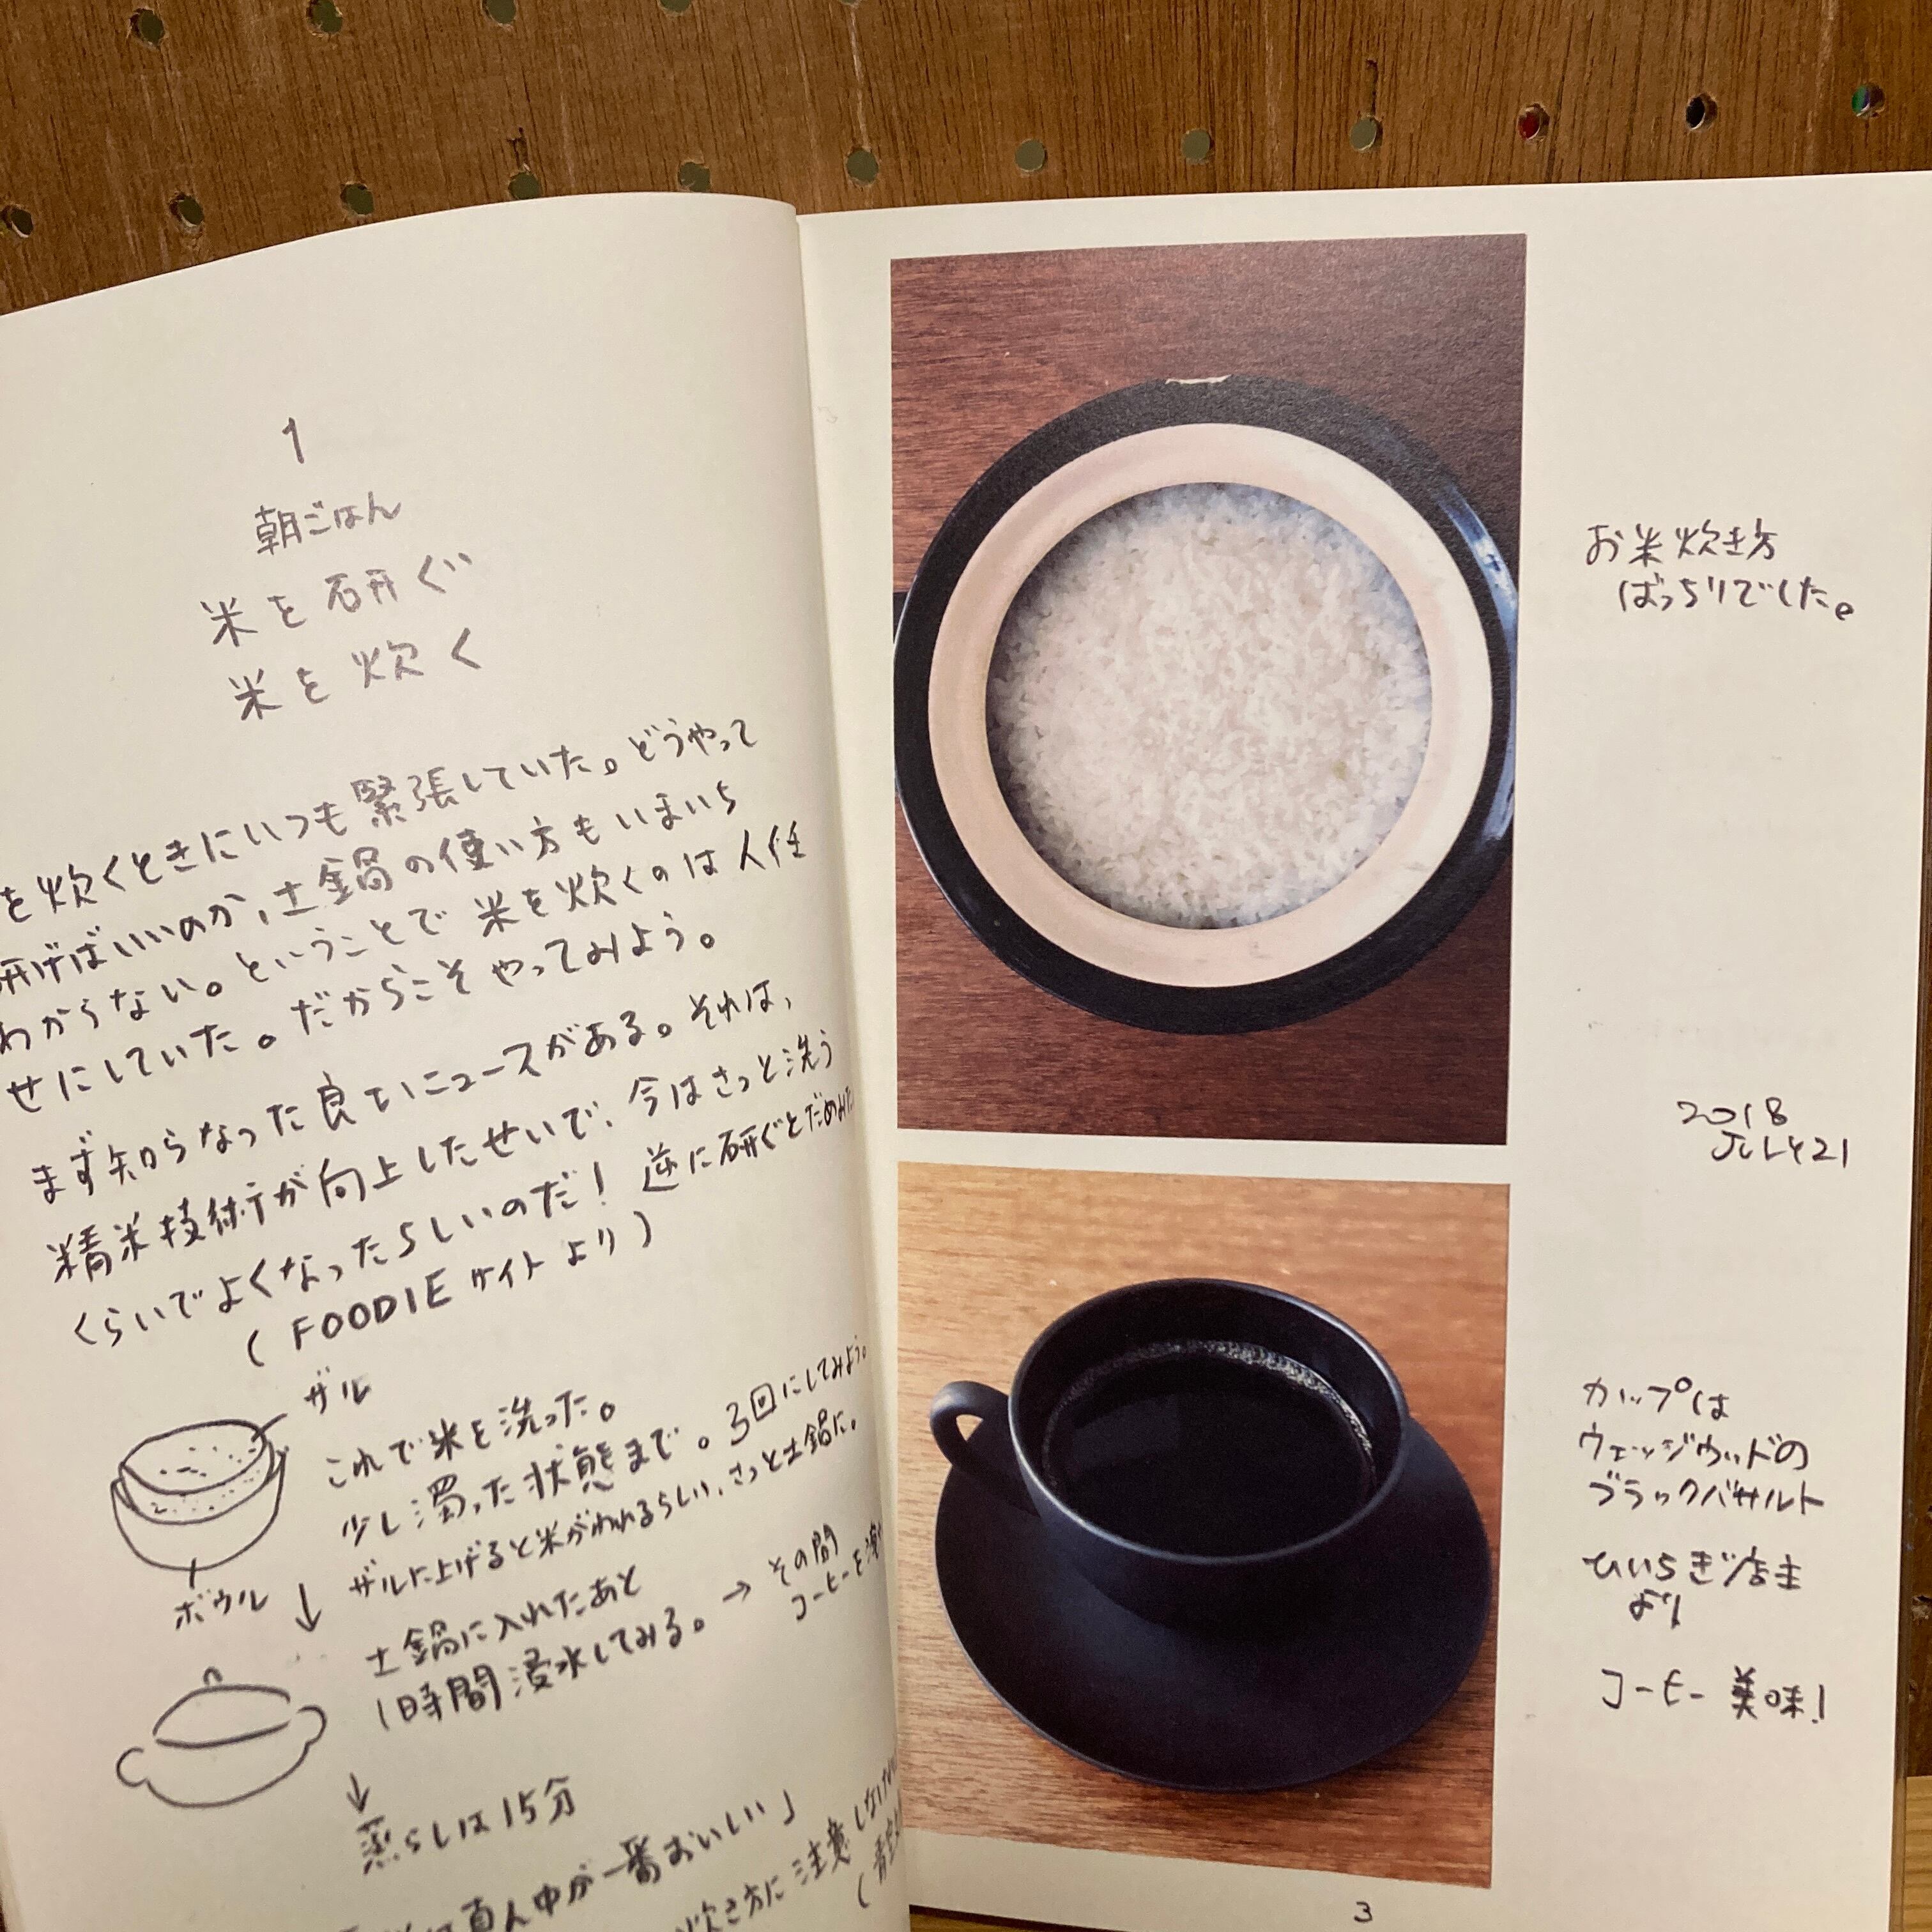 1
朝ごはん
米を研ぐ
米を炊く
を炊くときにいつも緊張していた。どうやって
研げばいいのか、土鍋の使い方もいまいち
わからない。ということで米を炊くのは人任
せにしていた。だからこそやってみよう。
まず知らなった良いニュースがある。それは、
精米技術が向上したせいで、今はさっと洗う
くらいでよくなったらしいのだ！逆に研ぐとだめみた
(FOODIEサイトより)
ザル
これで米を洗った。
少し濁った状態まで。3回にしてみよう。
ザルに上げると米がわれるらしい、さっと土鍋に。
ボウル
土鍋に入れたあと
1時間浸水してみる。→
その間
コーヒーを
蒸らしは15分
真人中が一番おいしい」
炊き方に注意しなけ
お米炊き方
ばっちりでした。
2018
JULY21
カップは
ウェッジウッドの
ブラックバサルト
ひいらぎ店主
より
コーヒー美味！
3